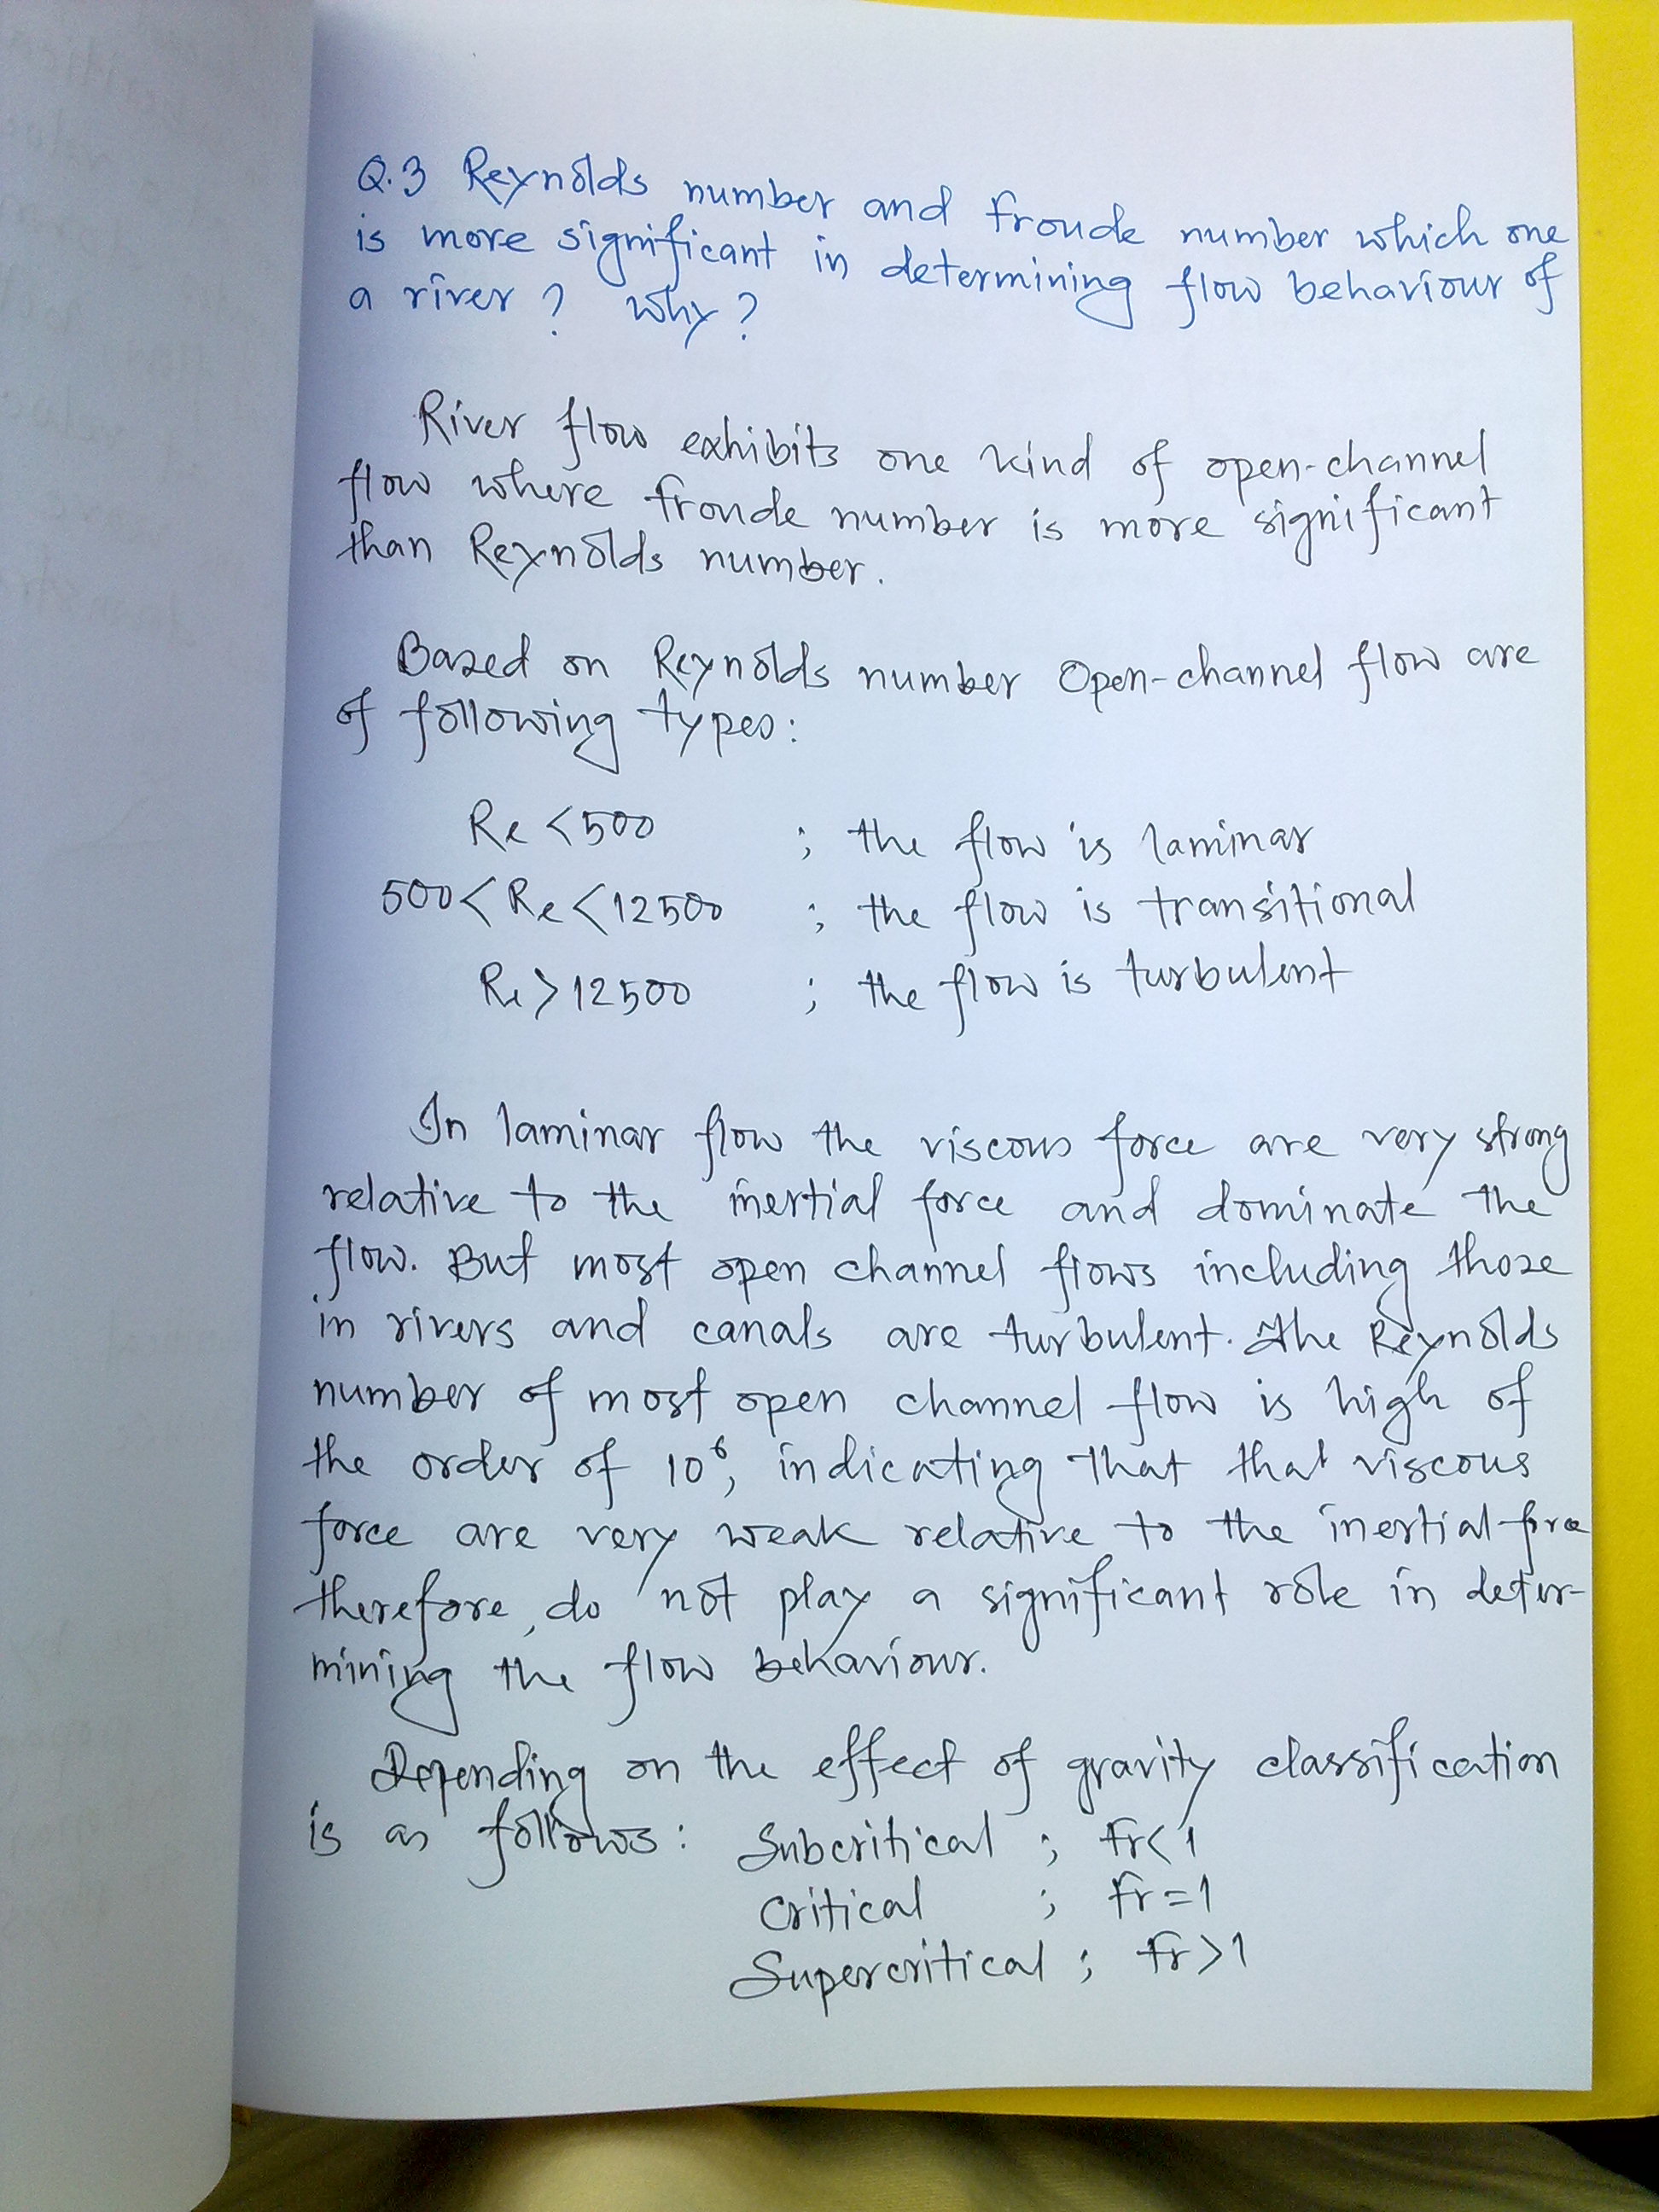 Q.3 Reynolds number and froude number which one
is more significant in determining flow behaviour of
a river? Why?
River flow exhibits one kind of open-channel
flow where froude number is more significant
than Reynolds number.
Based on Reynolds number Open-channel flow are
of following types:
Re < 500 ; the flow is laminar
500 < Re < 12500 ; the flow is transitional
Re > 12500 ; the flow is turbulent
In laminar flow the viscous force are very strong
relative to the inertial force and dominate the
flow. But most open channel flows including those
in rivers and canals are turbulent. The Reynolds
number of most open channel flow is high of
the order of 10⁶, indicating that that viscous
force are very weak relative to the inertial force
therefore, do not play a significant role in deter-
mining the flow behaviour.
Depending on the effect of gravity classification
is as follows: Subcritical ; fr < 1
Critical ; fr = 1
Supercritical ; fr > 1